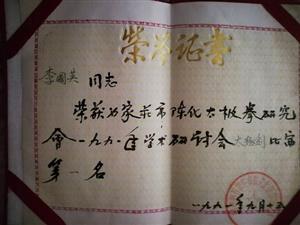 荣誉证书
李國英 同志
荣获石家庄市陈化太极拳研究
會一九九一年学术研讨会太极剑比宙
第一名
一九九一年九月十五